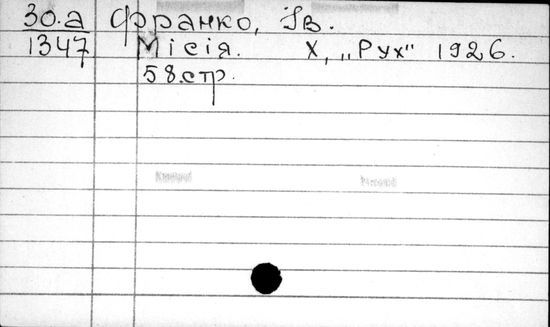 30.а Франко, Ів.
1347 Місія. Х, „Рух" 1926.
58.стр.